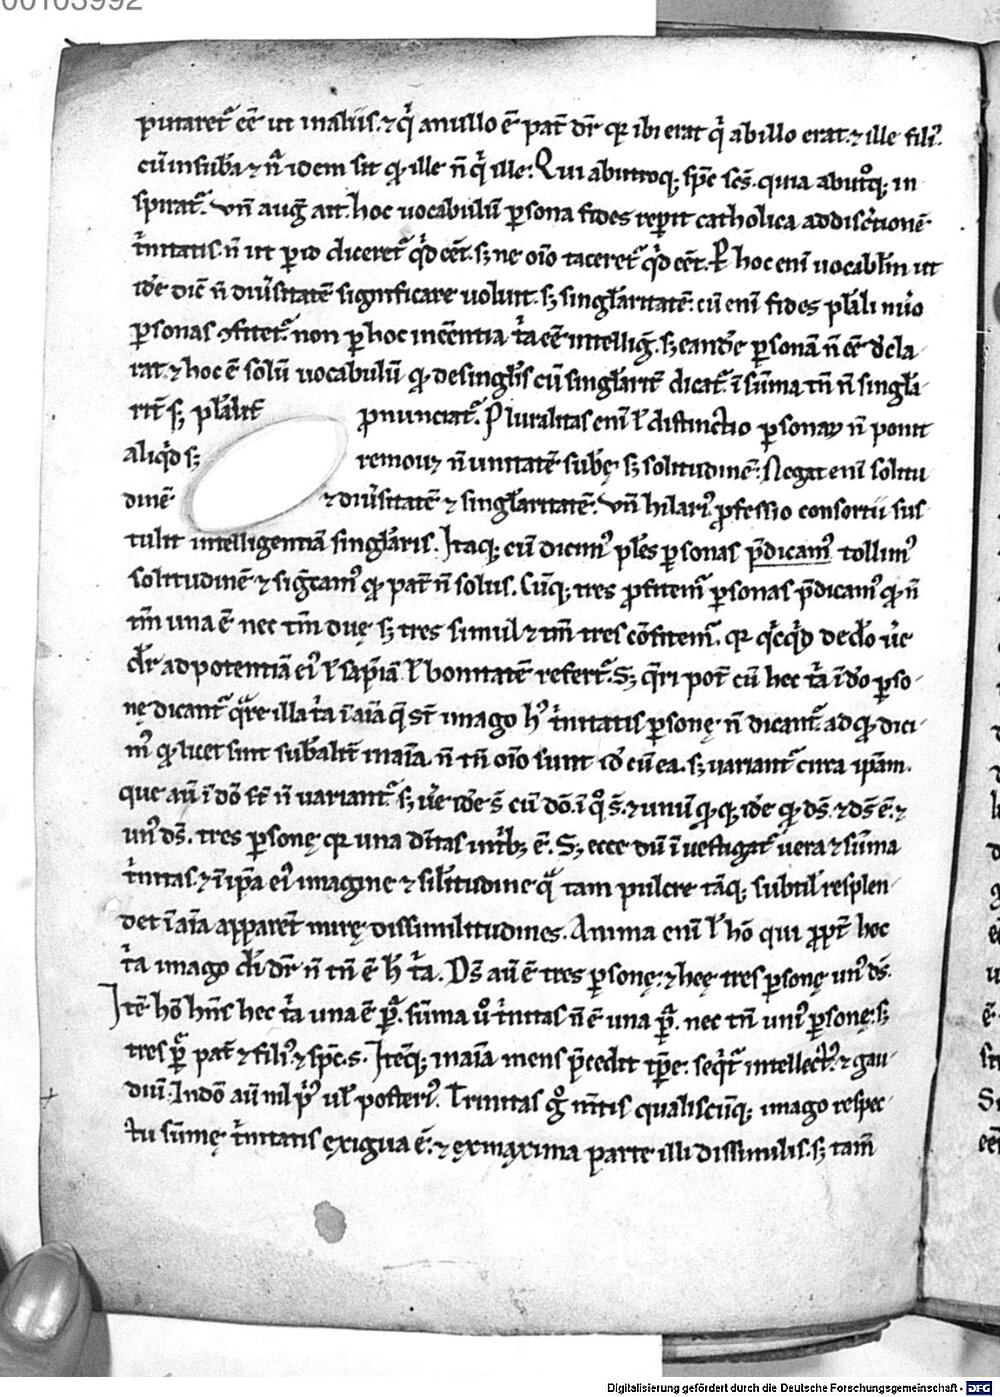 00103992
putaret᷒ eē ut in aliis. ⁊ q̇ a nullo ē pat̄ dr̄ qr ibi erat q̇ ab illo erat. ⁊ ille fili᷒.
cū in sub̄a ⁊ n̄r̄ idem sit qđ ille n̄ q̇ ille. Qui ab utroq; spc̄ sc̄s. quia ab utoq; in
spirat᷒. Vn̄ auḡ ait. hoc uocabulū ꝑsona fides repit catholica ad disc̄tionē
t̄nitatis. n̄ ut ꝑ id diceret᷒ qđ eēt. s; ne oīo taceret᷒ qđ eēt. Ꝑ hoc enī uocab̄lm ut
ide dic̄ n̄ diūsitatē significare uoluit. s; singl̄aritatē. cū enī fides pl̄ali nūo
ꝑsonas ꝯfitet᷒. non ꝑ hoc
rat. ⁊ hoc ē solū uocabulū qđ de singl̄is cū singl̄arit̄ dicat᷒ ī sūma tn̄ n̄ singl̄a-
rit̄ s; pl̄alit̄ ꝓnunciat᷒. Pluralitas enī l̄ distinctio ꝑsonaꝝ n̄ ponit
aliq̇d s; remouꝫ n̄ unitatē sub̄ę s; solitudinē. Negat enī solitu
dinē ⁊ diūsitatē ⁊ singl̄aritatē. Vn̄ hilari᷒ ꝓfessio consortii sus
tulit intelligentiā singl̄aris. Itaq; cū dicim᷒ pl̄es ꝑsonas p̄dicam᷒ tollim᷒
solitudinē ⁊ sig̅cam᷒ qđ pat̄ n̄ solus. Cūq; tres ꝓfitem᷒ ꝑsonas p̄dicam᷒ qđ n̄
tm̄ una ē nec tm̄ duę s; tres simul ⁊ tm̄ tres cōfitem᷒. qr q̇cq̇d de do ūe
dr̄ ad potentiā ei᷒ l̄ sap̄iā l̄ bonitatē refert᷒. S; q̄ri pot̄ cū hec t̄a ī do ꝑso-
nę dicant᷒ q̄re illa t̄a ī aīa q̄ st̄ imago h᷒ t̄nitatis ꝑsonę n̄ dicant᷒. ad qđ dici-
m᷒ qđ licet sint sub̄alit̄ in aīa. n̄ tn̄ oīo sunt iđ cū ea. s; uariant᷒ circa ipam.
que aū ī dō st̄ n̄ uariant᷒ s; ūe ide s̄ cū dō. ī q° s̄. ⁊ unū qđq; ide qđ ds̄. ⁊ ds̄ ē. ⁊
un᷒ ds̄. tres ꝑsonę qr una dn̄tas in trib; ē. S; ecce dū īuestigat᷒ uera ⁊ sūma
t̄nitas. ⁊ in ip̄a ei᷒ imagine ⁊ sil̄itudine q̄ tam pulcre tāq; subtil̄ resplen-
det ī aīa apparet̄ mirę dissimilitudines. Anima enī l̄ hō qui ꝓpt̄ hec
t̄a imago di dr̄ n̄ tn̄ ē h̄ t̄a. Ds̄ aū ē tres ꝑsonę. ⁊ hęę tres ꝑsonę un᷒ ds̄.
Itē hō hn̄s hec t̄a una ē ꝑ̄. sūma ū° t̄nitas n̄ ē una ꝑ̄. nec tn̄ uni᷒ ꝑsonę. s;
tres ꝑ̄ pat̄ ⁊ fili᷒ ⁊ spc̄s. Itēq; in aīa mens p̄cedit tp̄e. seq̇t᷒ intellect᷒. ⁊ gau-
diū. In dō aū nil p᷒ ul̄ posteri᷒. Trinitas g° m̄tis qualiscūq; imago respec
tu sūmę t̄nitatis exigua ē. ⁊ ex maxima parte illi dissimilis. s; tam̄
Digitalisierung gefördert durch die Deutsche Forschungsgemeinschaft - DFG